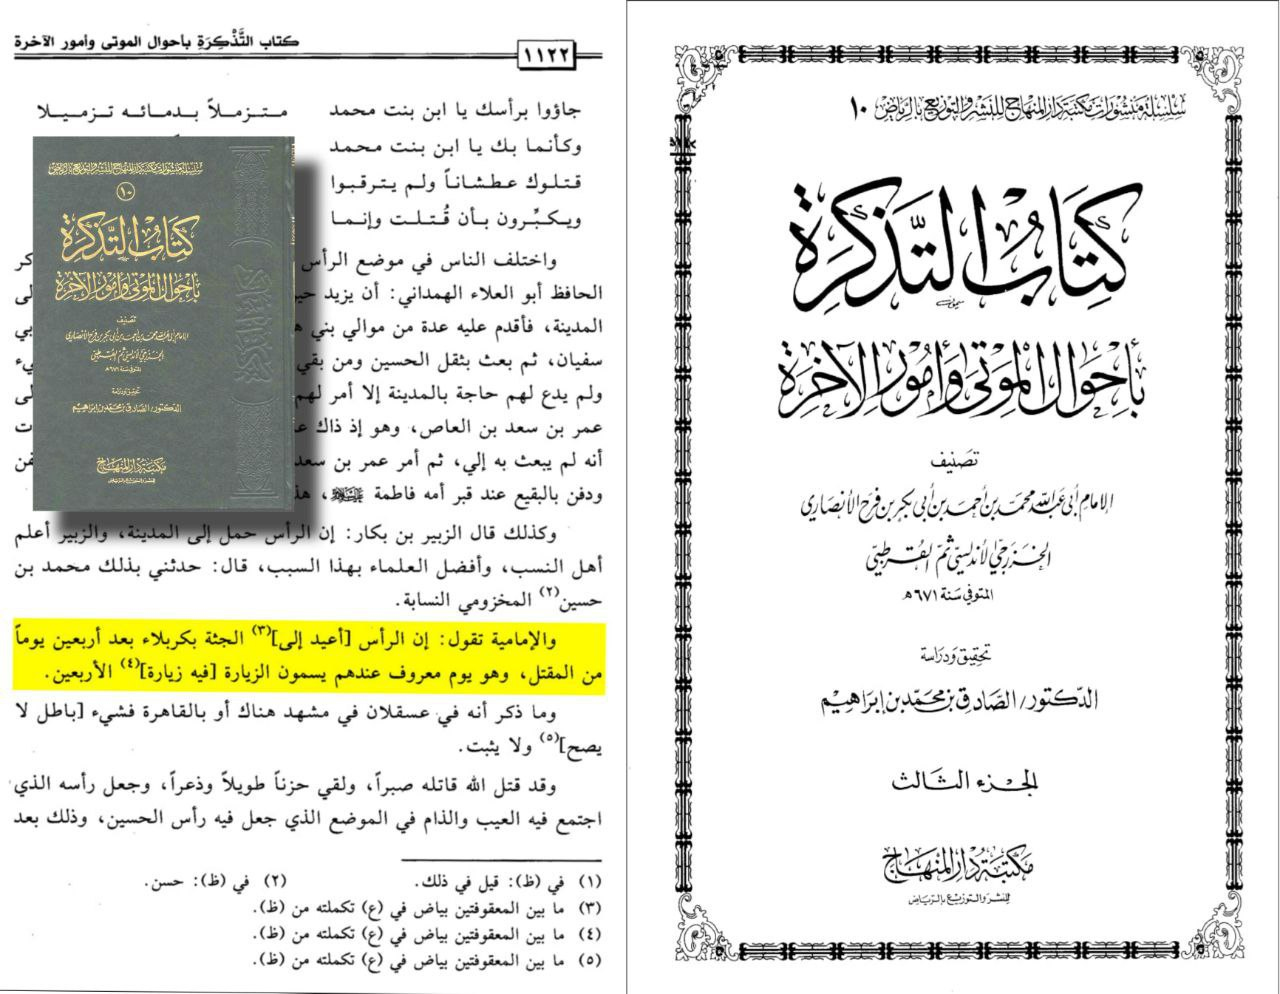 كتاب التَّذْكِرَةِ بأحوال الموتى وأمور الآخرة
١١٢٢
جاؤوا برأسك يا ابن بنت محمد متـزملاً بـدمـائـه تـزمـيـلا
وكأنما بك يا ابن بنت محمد
قـتـلوك عـطـشـانـاً ولم يـتـرقـبـوا
ويـكـبِّـرون بـأن قُـتـلـت وإنـمـا
واختلف الناس في موضع الرأس
الحافظ أبو العلاء الهمداني: أن يزيد
المدينة، فأقدم عليه عدة من موالي بني
سفيان، ثم بعث بثقل الحسين ومن بقي
ولم يدع لهم حاجة بالمدينة إلا أمر لهم
عمر بن سعد بن العاص، وهو إذ ذاك
أنه لم يبعث به إلي، ثم أمر عمر بن سعد
ودفن بالبقيع عند قبر أمه فاطمة عليها السلام،
وكذلك قال الزبير بن بكار: إن الرأس حمل إلى المدينة، والزبير أعلم
أهل النسب، وأفضل العلماء بهذا السبب، قال: حدثني بذلك محمد بن
حسين(٢) المخزومي النسابة.
والإمامية تقول: إن الرأس [أعيد إلى](٣) الجثة بكربلاء بعد أربعين يوماً
من المقتل، وهو يوم معروف عندهم يسمون الزيارة [فيه زيارة](٤) الأربعين.
وما ذكر أنه في عسقلان في مشهد هناك أو بالقاهرة فشيء [باطل لا
يصح](٥) ولا يثبت.
وقد قتل الله قاتله صبراً، ولقي حزناً طويلاً وذعراً، وجعل رأسه الذي
اجتمع فيه العيب والذام في الموضع الذي جعل فيه رأس الحسين، وذلك بعد
(١) في (ظ): قيل في ذلك. (٢) في (ظ): حسن.
(٣) ما بين المعقوفتين بياض في (ع) تكملته من (ظ).
(٤) ما بين المعقوفتين بياض في (ع) تكملته من (ظ).
(٥) ما بين المعقوفتين بياض في (ع) تكملته من (ظ).
سلسلة منشورات مكتبة دار المنهاج للنشر والتوزيع بالرياض
١٠
كتاب التذكرة
بأحوال الموتى وأمور الآخرة
تصنيف
الإمام أبي عبد الله محمد بن أحمد بن أبي بكر بن فرح الأنصاري
الخزرجي الأندلسي ثم القرطبي
المتوفى سنة ٦٧١هـ
تحقيق ودراسة
الدكتور/الصادق بن محمد بن إبراهيم
مكتبة دار المنهاج
للنشر والتوزيع بالرياض
سلسلة منشورات مكتبة دار المنهاج للنشر والتوزيع بالرياض ١٠
كِتَابُ التَّذكِرَة
بأحوال الموتى وأمور الآخرة
تصنيف
الإمام أبي عبد الله محمد بن أحمد بن أبي بكر بن فرح الأنصاري
الخزرجي الأندلسي ثم القرطبي
المتوفى سنة ٦٧١هـ
تحقيق ودراسة
الدكتور/الصادق بن محمد بن إبراهيم
الجزء الثالث
مكتبة دار المنهاج
للنشر والتوزيع بالرياض